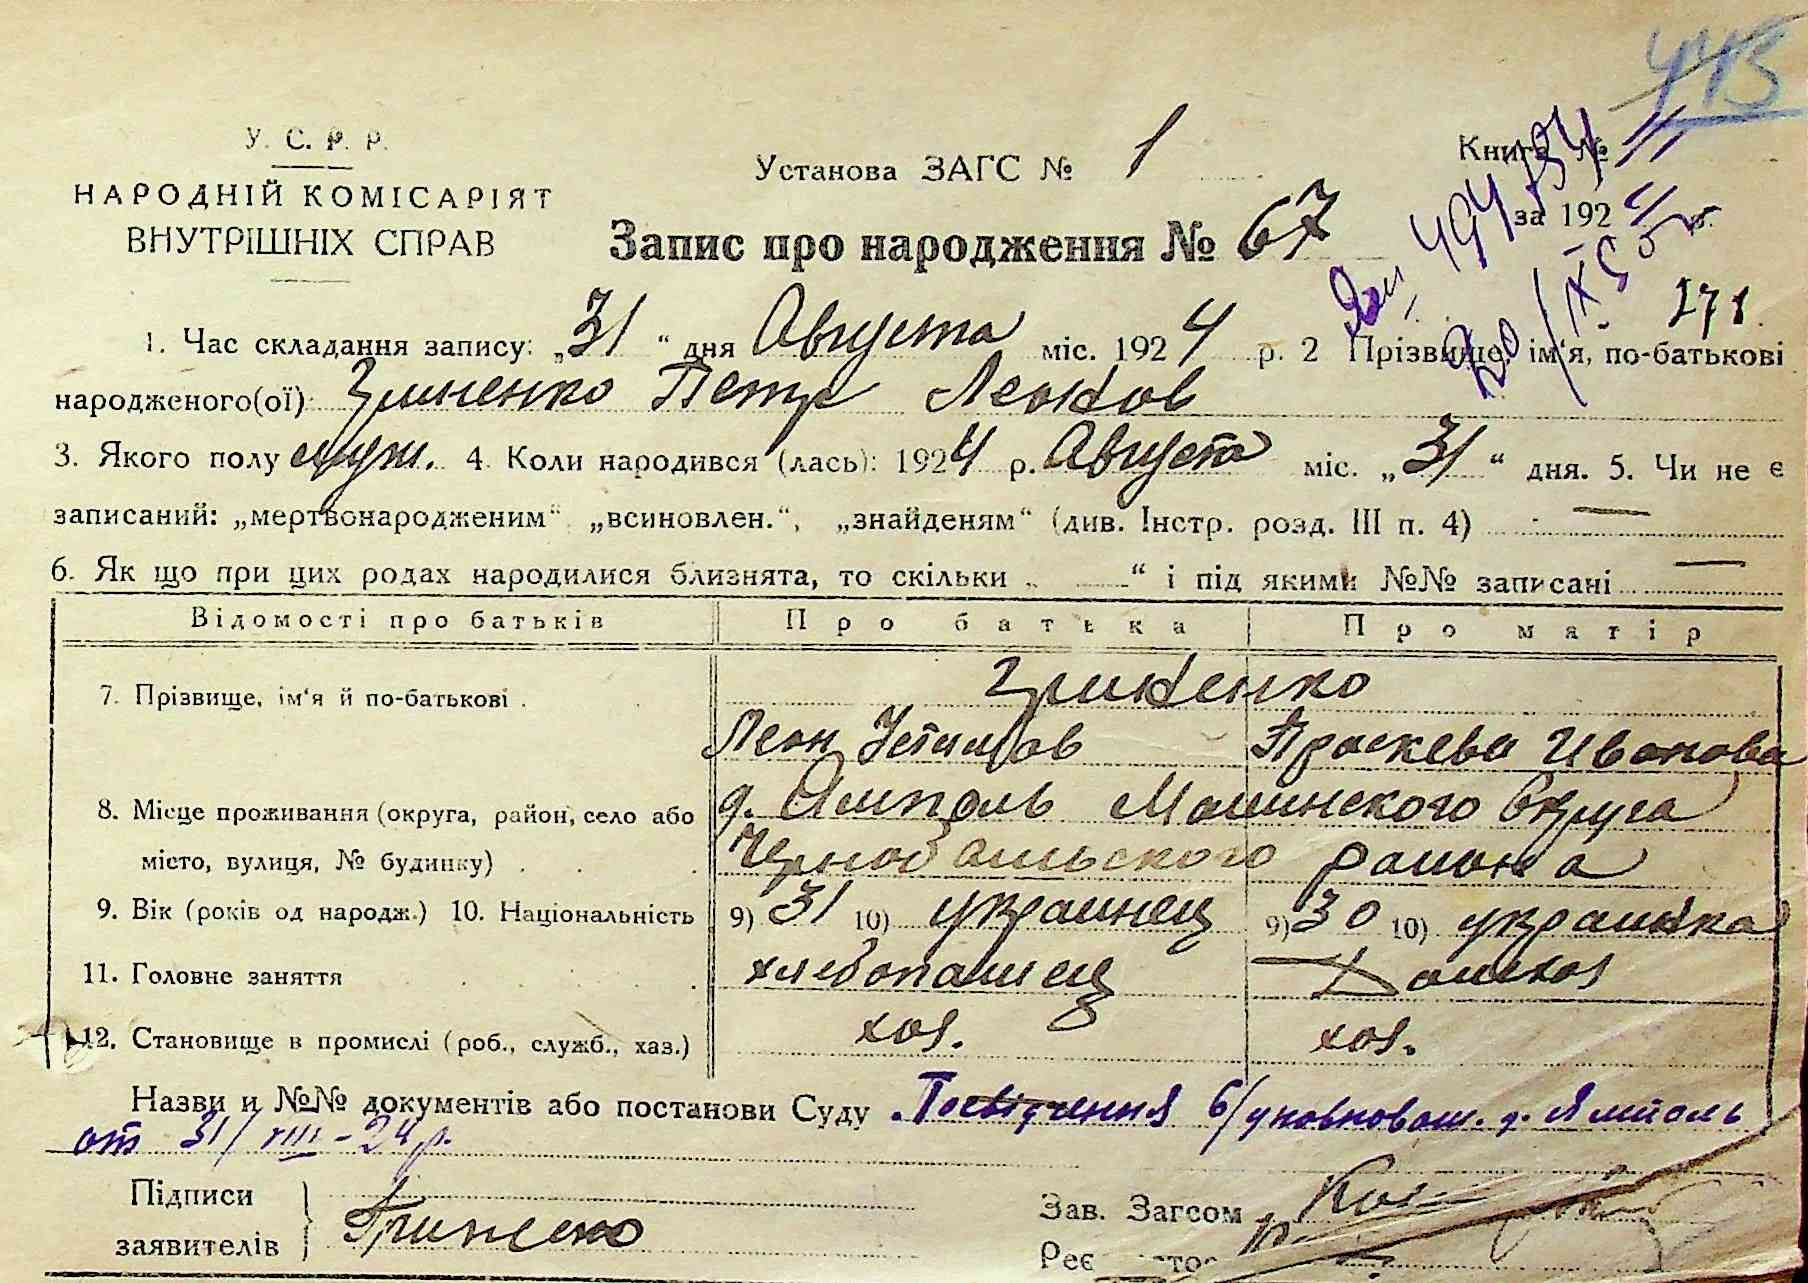 443
У. С. Р. Р.
НАРОДНІЙ КОМІСАРІЯТ
ВНУТРІШНІХ СПРАВ
Установа ЗАГС № 1
Книга №
за 1924 р.
Запис про народження № 67
271
1. Час складання запису: „31“ дня Августа міс. 1924 р. 2 Прізвище, ім‘я, по-батькові
народженого(ої) Гриненко Петр Леонов
3. Якого полу муж. 4. Коли народився (лась): 1924 р. Августа міс. „31“ дня. 5. Чи не є
записаний: „мертвонародженим“ „всиновлен.“, „знайденям“ (див. Інстр. розд. III п. 4) —
6. Як що при цих родах народилися близнята, то скільки „ “ і під якими №№ записані —
Відомості про батьків Про батька Про матір
7. Прізвище, ім‘я й по-батькові . Гриненко
Леон Устимов Праскева Иванова
8. Місце проживання (округа, район, село або д. Ямполь Округа
місто, вулиця, № будинку) района
9. Вік (років од народж.) 10. Національність 9) 31 10) украинец 9) 30 10) украинка
11. Головне заняття хлебопашец Домхоз
12. Становище в промислі (роб., служб., хаз.) хоз. хоз.
Назви и №№ документів або постанови Суду Посвідчення б/ уповноваж. д. Ямполь
от 31/VIII-24 р.
Підписи
заявителів Гриненко
Зав. Загсом